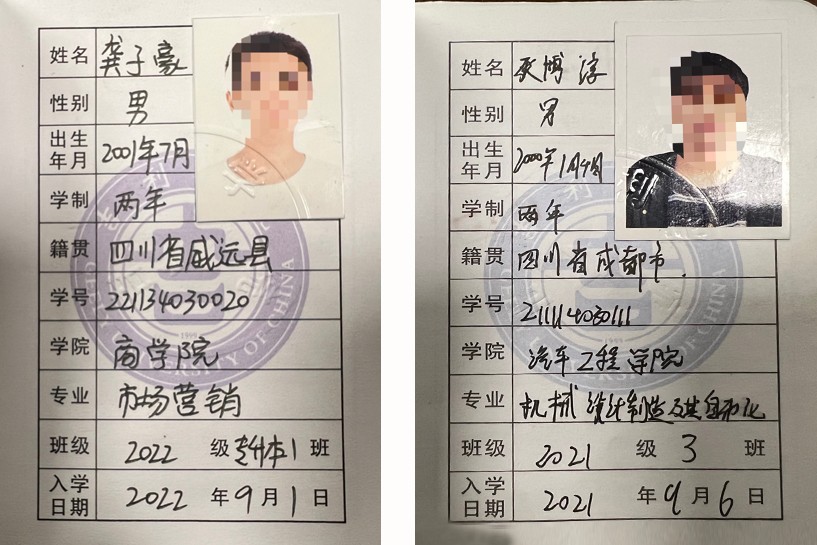 姓名 龚子豪
性别 男
出生年月 2001年7月
学制 两年
籍贯 四川省威远县
学号 221134030020
学院 商学院
专业 市场营销
班级 2022 级 专升本1 班
入学日期 2022 年 9 月 1 日
UNIVERSITY OF CHINA
姓名 博淳
性别 男
出生年月 2000年1月4月
学制 两年
籍贯 四川省成都市.
学号 211114030111
学院 汽车工程学院
专业 机械设计制造及其自动化
班级 2021 级 3 班
入学日期 2021 年 9 月 6 日
UNIVERSITY OF CHINA